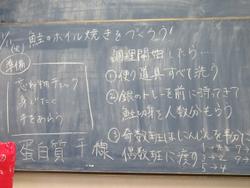 鮭のホイル焼きをつくろう!
準備
忘れ物チェック
身じたく
手をあらう
蛋白質 千様
調理開始したら…
①使う道具すべて洗う
②銀のトレーを前に持ってきて
鮭の切身を人数分もらう
③奇数班はにんじんを半分に
偶数班に渡り
3→2
5→4